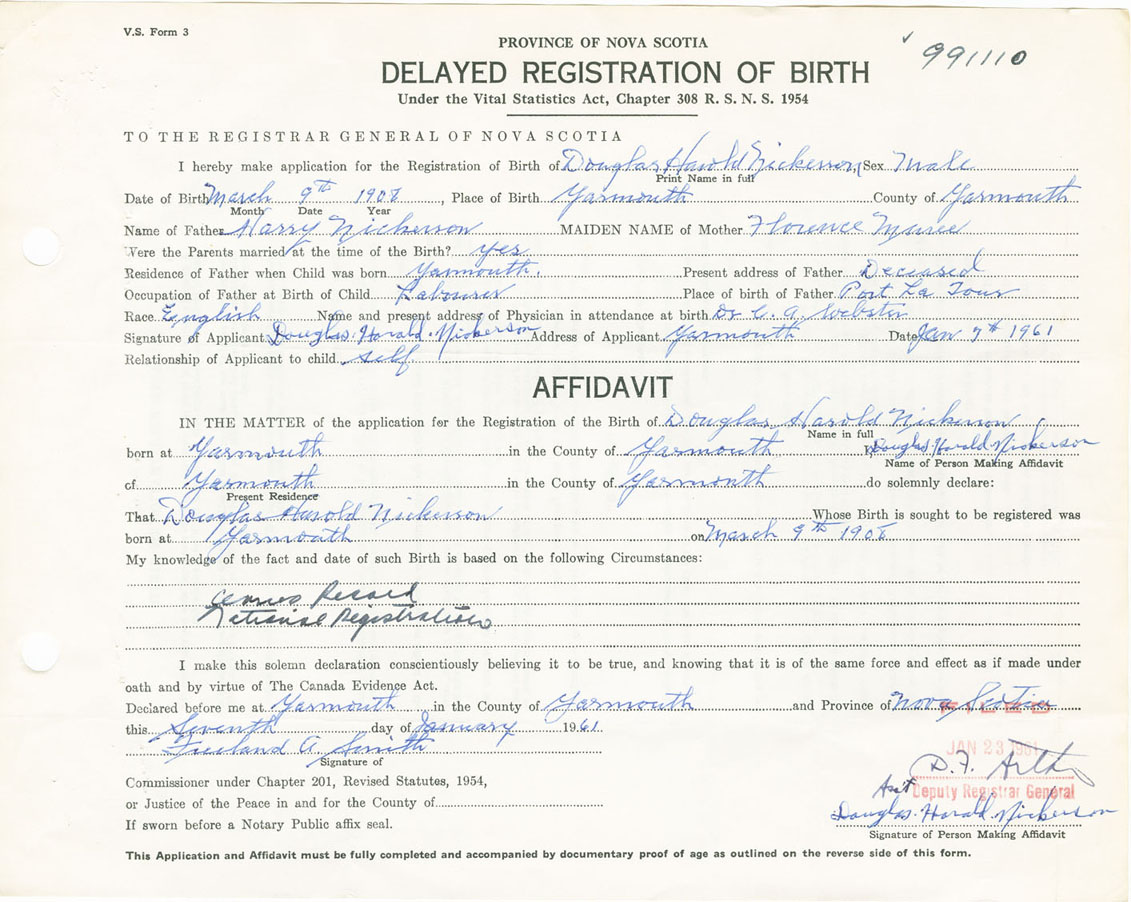 V.S. Form 3
991110
PROVINCE OF NOVA SCOTIA
DELAYED REGISTRATION OF BIRTH
Under the Vital Statistics Act, Chapter 308 R. S. N. S. 1954
TO THE REGISTRAR GENERAL OF NOVA SCOTIA
I hereby make application for the Registration of Birth of Douglas Harold Nickerson, Sex Male
Print Name in full
Date of Birth March 9th 1908, Place of Birth Yarmouth County of Yarmouth
Month Date Year
Name of Father Harry Nickerson MAIDEN NAME of Mother Florence
Were the Parents married at the time of the Birth? yes
Residence of Father when Child was born Yarmouth. Present address of Father Deceased
Occupation of Father at Birth of Child Labourer Place of birth of Father Port La Tour
Race English Name and present address of Physician in attendance at birth Dr C. A. Webster
Signature of Applicant Douglas Harold Nickerson Address of Applicant Yarmouth Date Jan 7th 1961
Relationship of Applicant to child self
AFFIDAVIT
IN THE MATTER of the application for the Registration of the Birth of Douglas Harold Nickerson
Name in full
born at Yarmouth in the County of Yarmouth Douglas Harold Nickerson
Name of Person Making Affidavit
of Yarmouth in the County of Yarmouth do solemnly declare:
Present Residence
That Douglas Harold Nickerson Whose Birth is sought to be registered was
born at Yarmouth on March 9th 1908
My knowledge of the fact and date of such Birth is based on the following Circumstances:
Census Record
National Registration
I make this solemn declaration conscientiously believing it to be true, and knowing that it is of the same force and effect as if made under
oath and by virtue of The Canada Evidence Act.
Declared before me at Yarmouth in the County of Yarmouth and Province of Nova Scotia
this Seventh day of January 1961.
Freeland A. Smith
Signature of
JAN 23 1961
Commissioner under Chapter 201, Revised Statutes, 1954,
Ass't Deputy Registrar General
or Justice of the Peace in and for the County of
Douglas Harold Nickerson
If sworn before a Notary Public affix seal.
Signature of Person Making Affidavit
This Application and Affidavit must be fully completed and accompanied by documentary proof of age as outlined on the reverse side of this form.